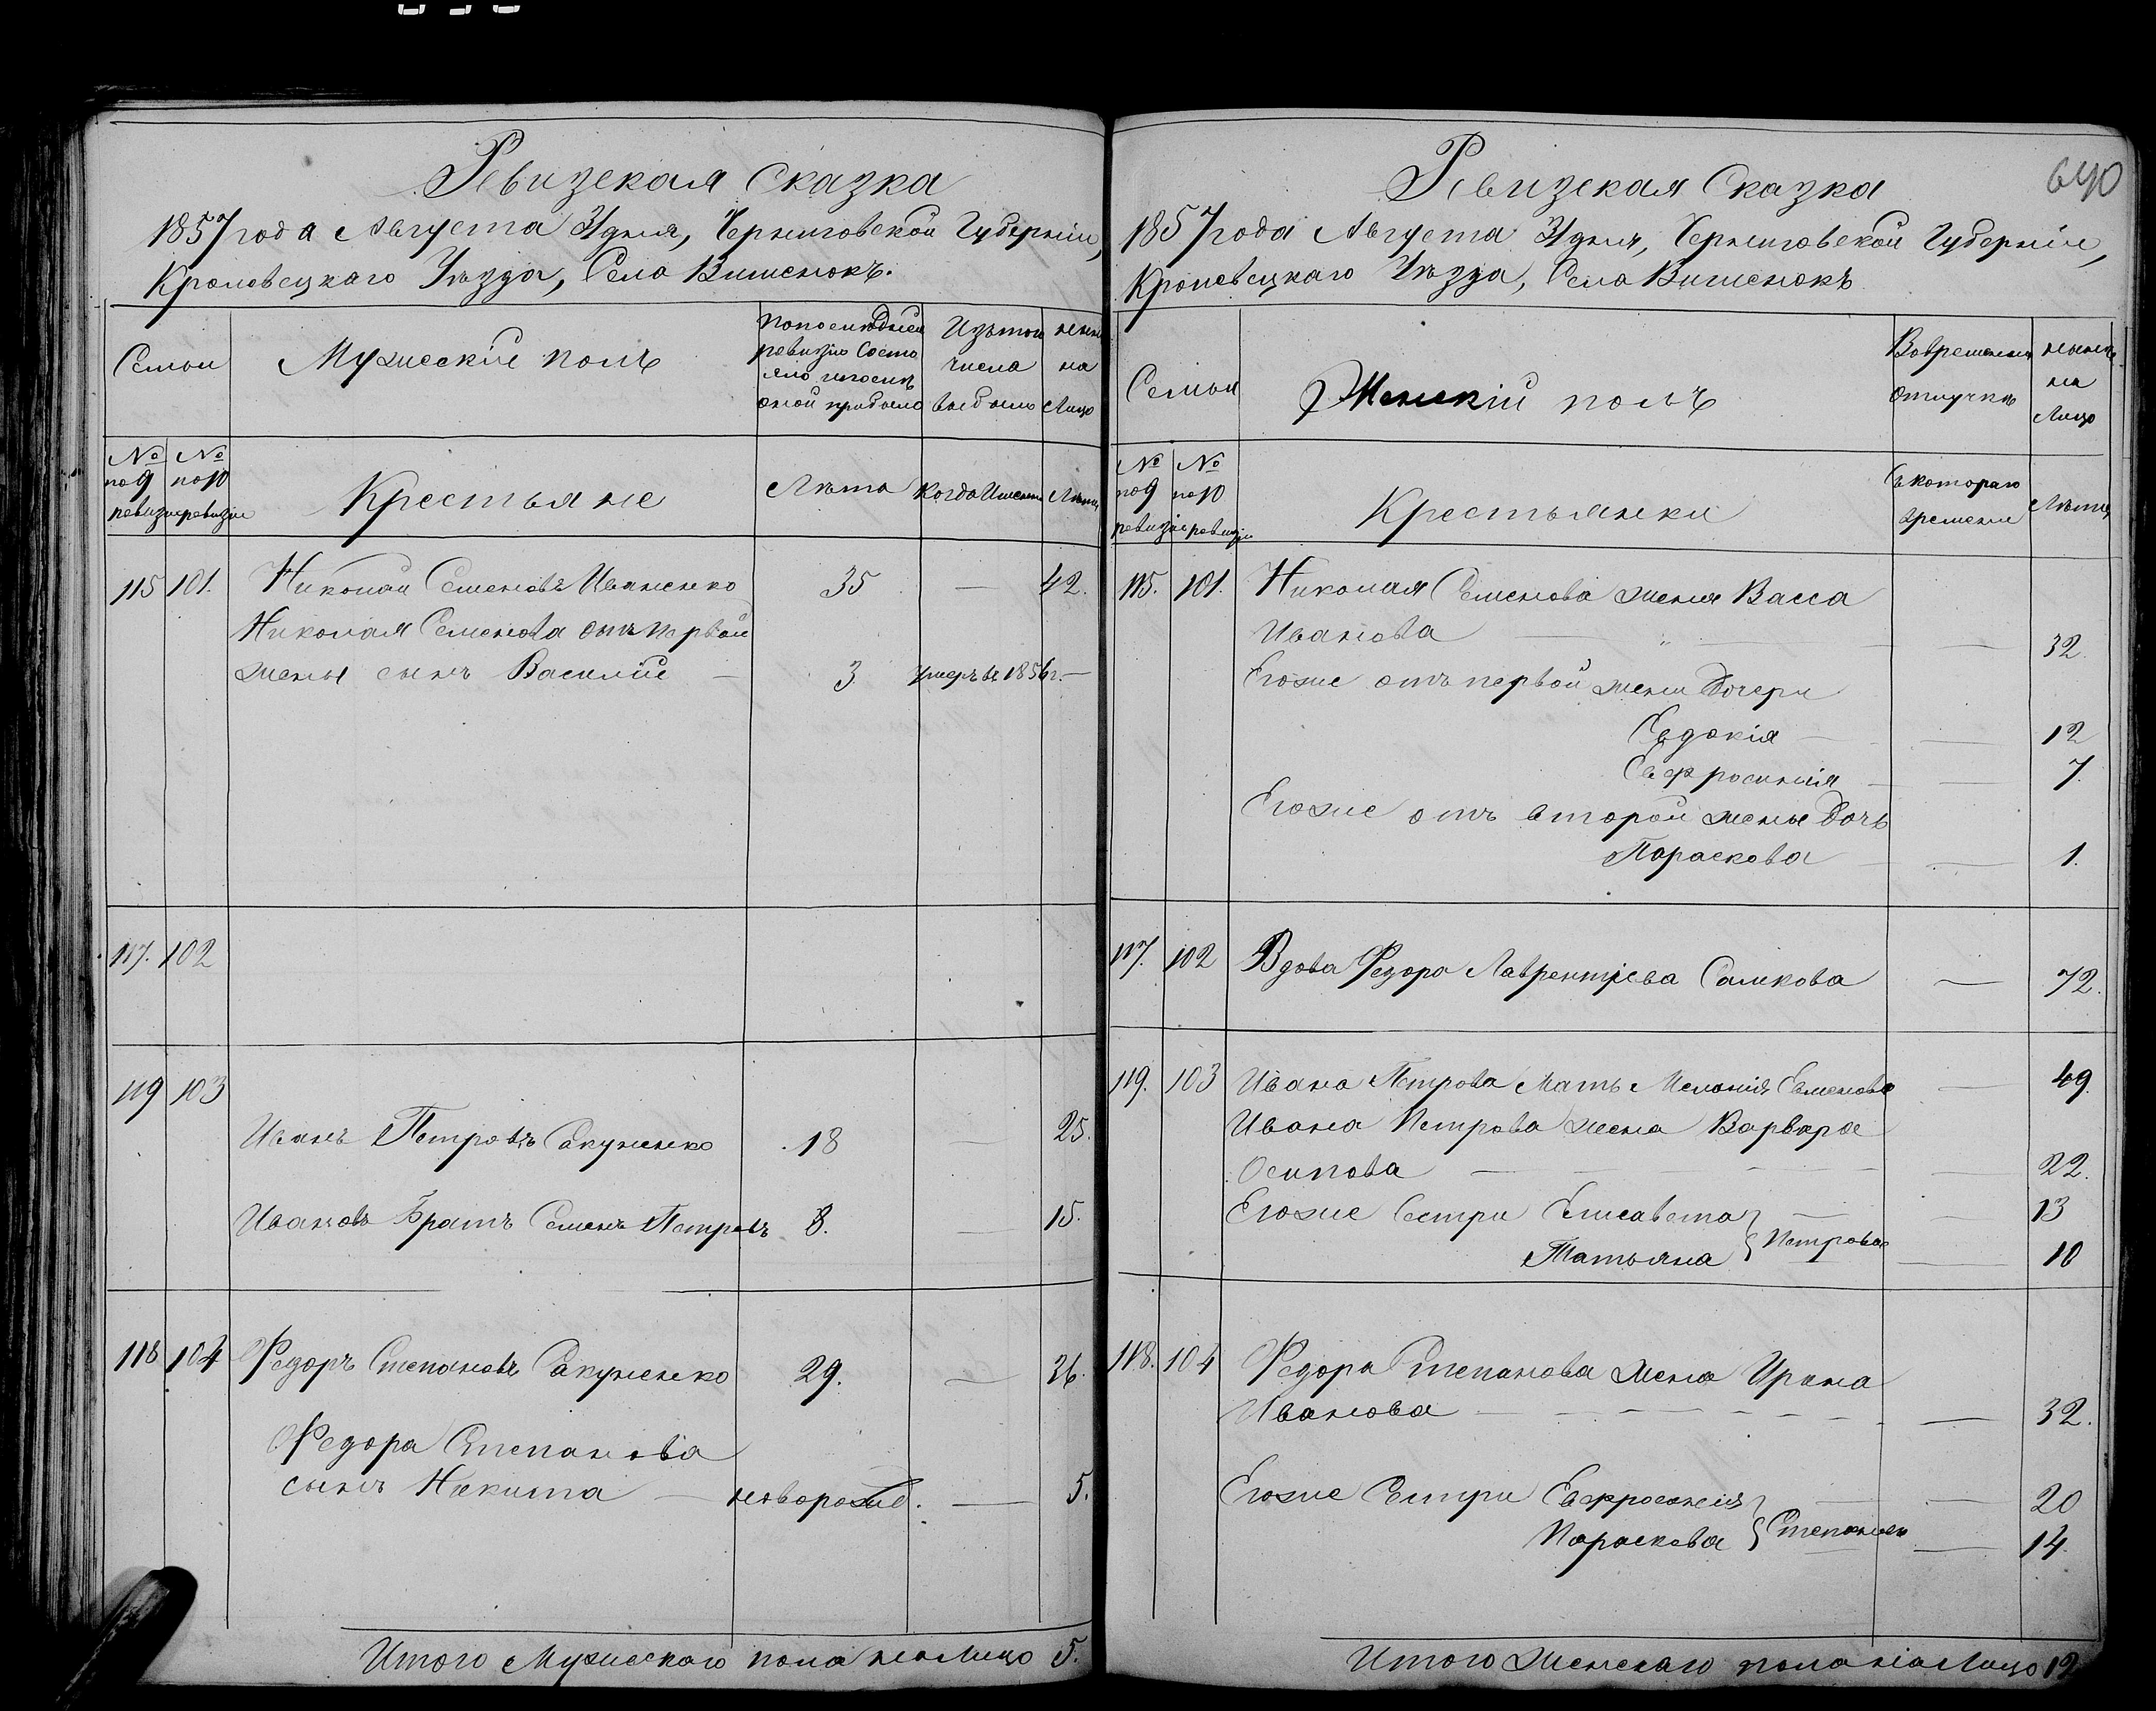 Ревизская Сказка
1857 года Августа 31 дня, Черниговской Губерніи,
Кролевецкаго Уѣзда, Села Вишенокъ.
Семьи
Мужескій полъ
По последней ревизіи состояло и после оной прибыло
Изъ того числа выбыло
ныне на лицо
№ по 9 ревизіи
№ по 10 ревизіи
Крестьяне
Лѣта
Когда Именно
Лѣта
115 101. Николай Семеновъ Иваненко 35 — 42.
Николая Семенова отъ первой
жены сынъ Василій — 3 умеръ въ 1856 г. —
117. 102
119 103
Иванъ Петровъ Сакуненко 18 — 25.
Ивановъ Братъ Семенъ Петровъ 8. — 15.
118 104 Федоръ Степановъ Сакуненко 29. — 36.
Федора Степанова
сынъ Никита — новорожд. — 5.
Итого Мужескаго пола на лицо 5.
640
Ревизская Сказка
1857 года Августа 31 дня, Черниговской Губерніи,
Кролевецкаго Уѣзда, Села Вишенокъ
Семьи
Женскій полъ
Во временной отлучкѣ
нынѣ на Лицо
№ по 9 ревизіи
№ по 10 ревизіи
Крестьянки
Съ котораго времени
Лѣта
115. 101. Николая Семенова жена Васса
Иванова — — 32.
Егоже отъ первой жены Дочери
Евдокія — — 12
Евфросинія — — 7.
Егоже отъ второй жены Дочь
Параскова — — 1.
117. 102 Вдова Федора Лаврентьева Самкова — 72.
119. 103 Ивана Петрова Мать Меланія Семенова — 49.
Ивана Петрова жена Варвара
Осипова — — 22.
Егоже Сестри Елисавета — — 13
Татьяна } Петровы — 10
118. 104 Федора Степанова жена Ирина
Иванова — — 32.
Егоже Сестри Евфросинія — — 20
Параскова } Степановы — 14.
Итого Женскаго пола на Лицо 12